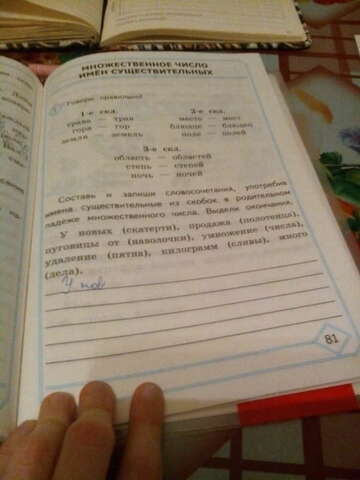 МНОЖЕСТВЕННОЕ ЧИСЛО
ИМЁН СУЩЕСТВИТЕЛЬНЫХ
Говори правильно!
1-е скл. 2-е скл.
трава — трав место — мест
гора — гор блюдце — блюдец
земля — земель поле — полей
3-е скл.
область — областей
степь — степей
ночь — ночей
Составь и запиши словосочетания, употребив
имена существительные из скобок в родительном
падеже множественного числа. Выдели окончания.
У новых (скатерти), продажа (полотенца),
пуговицы от (наволочки), умножение (числа),
удаление (пятна), килограмм (сливы), много
(дела).
У нов
81